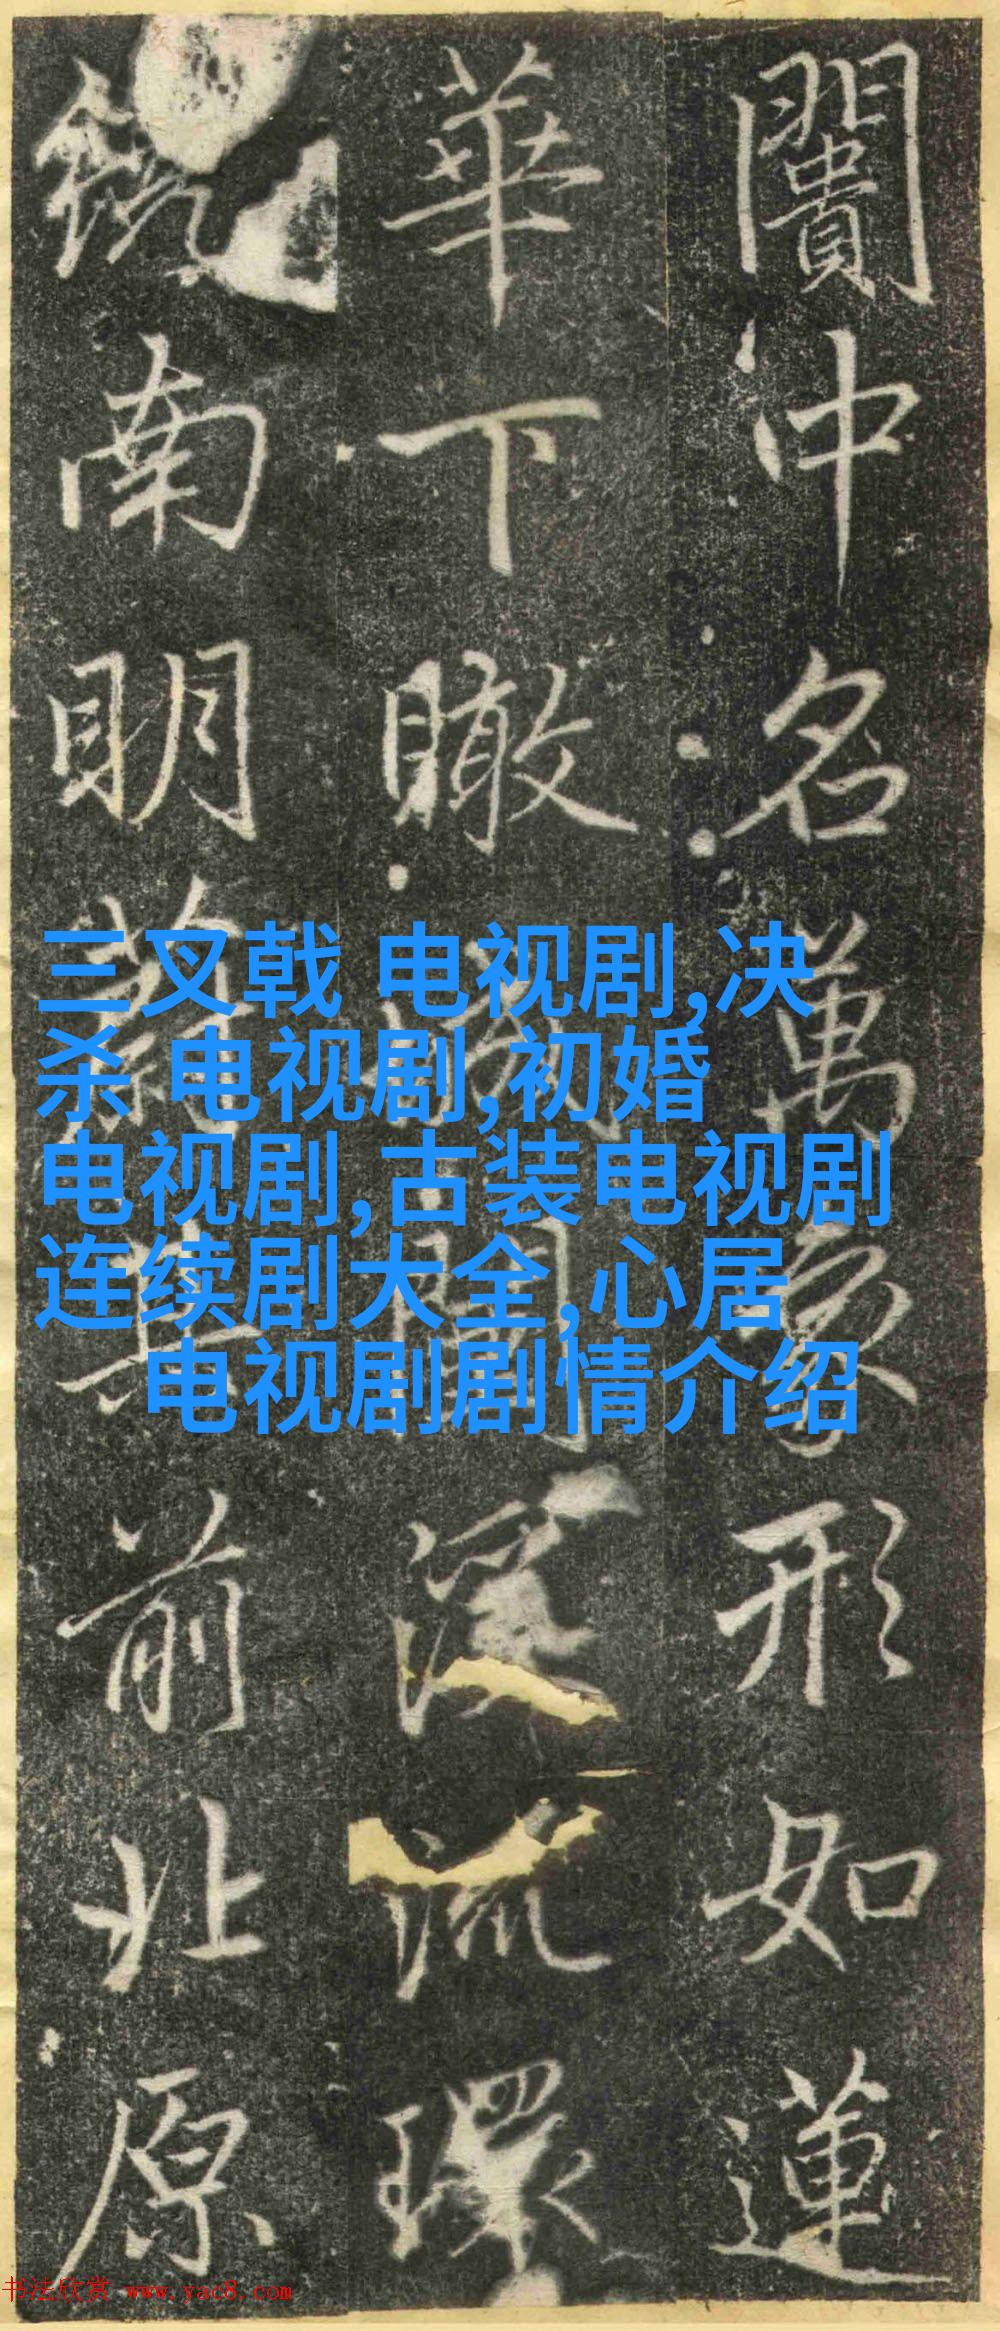 闠冲名萬象形如蓮
華下瞰流環
南明其前北原
三叉戟 电视剧,决
杀 电视剧,初婚
电视剧,古装电视剧
连续剧大全,心居
电视剧剧情介绍
书法欣赏 www.yac8.com